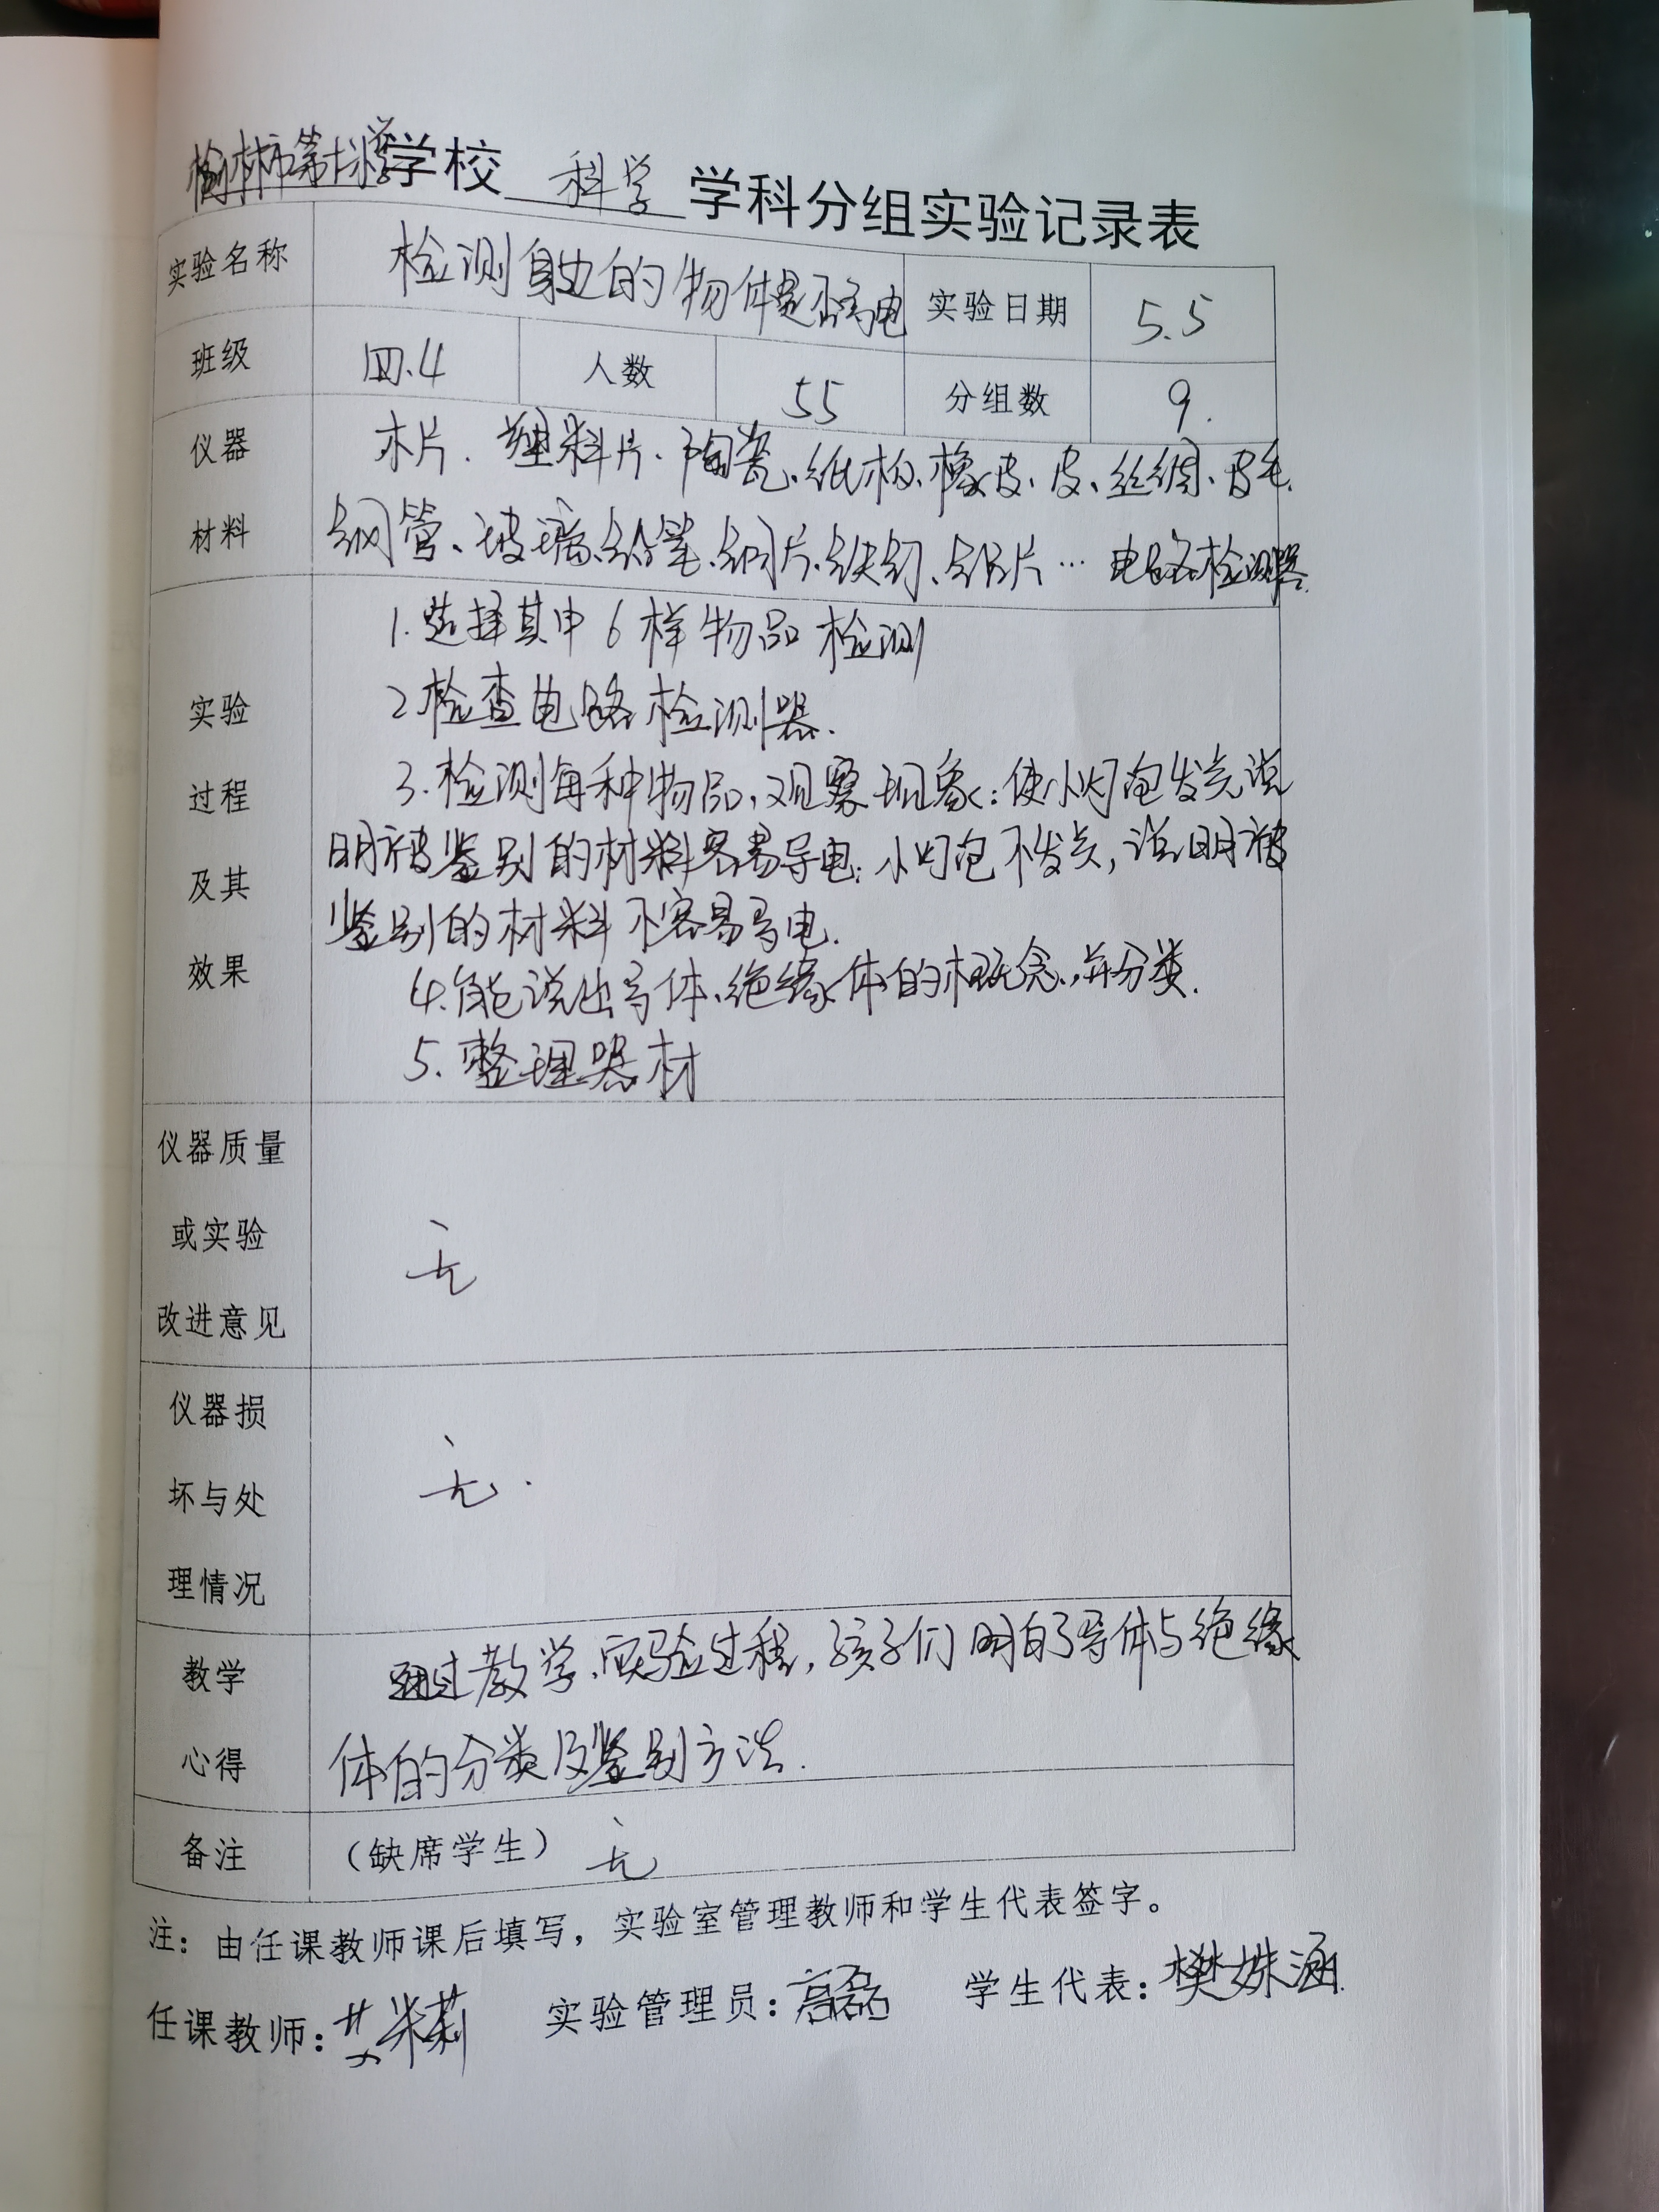 榆林市第十小学学校 科学 学科分组实验记录表
实验名称 检测身边的物体是否导电 实验日期 5.5
班级 四.4 人数 55 分组数 9.
仪器 木片、塑料片、陶瓷、纸板、橡皮、皮、丝绸、皮毛、
材料 钢管、玻璃、铅笔、铜片、铁钉、铝片… 电路检测器.
1.选择其中6样物品检测
2.检查电路检测器.
实验
3.检测每种物品,观察现象:使小灯泡发光说
过程
明被鉴别的材料容易导电;小灯泡不发光,说明被
及其
鉴别的材料不容易导电.
效果
4.能说出导体、绝缘体的概念,并分类.
5.整理器材
仪器质量
或实验 无
改进意见
仪器损
坏与处 无.
理情况
教学 通过教学、实验过程,孩子们明白了导体与绝缘
心得 体的分类及鉴别方法.
备注 (缺席学生) 无
注:由任课教师课后填写,实验室管理教师和学生代表签字。
任课教师: 实验管理员:高磊 学生代表:樊姝涵